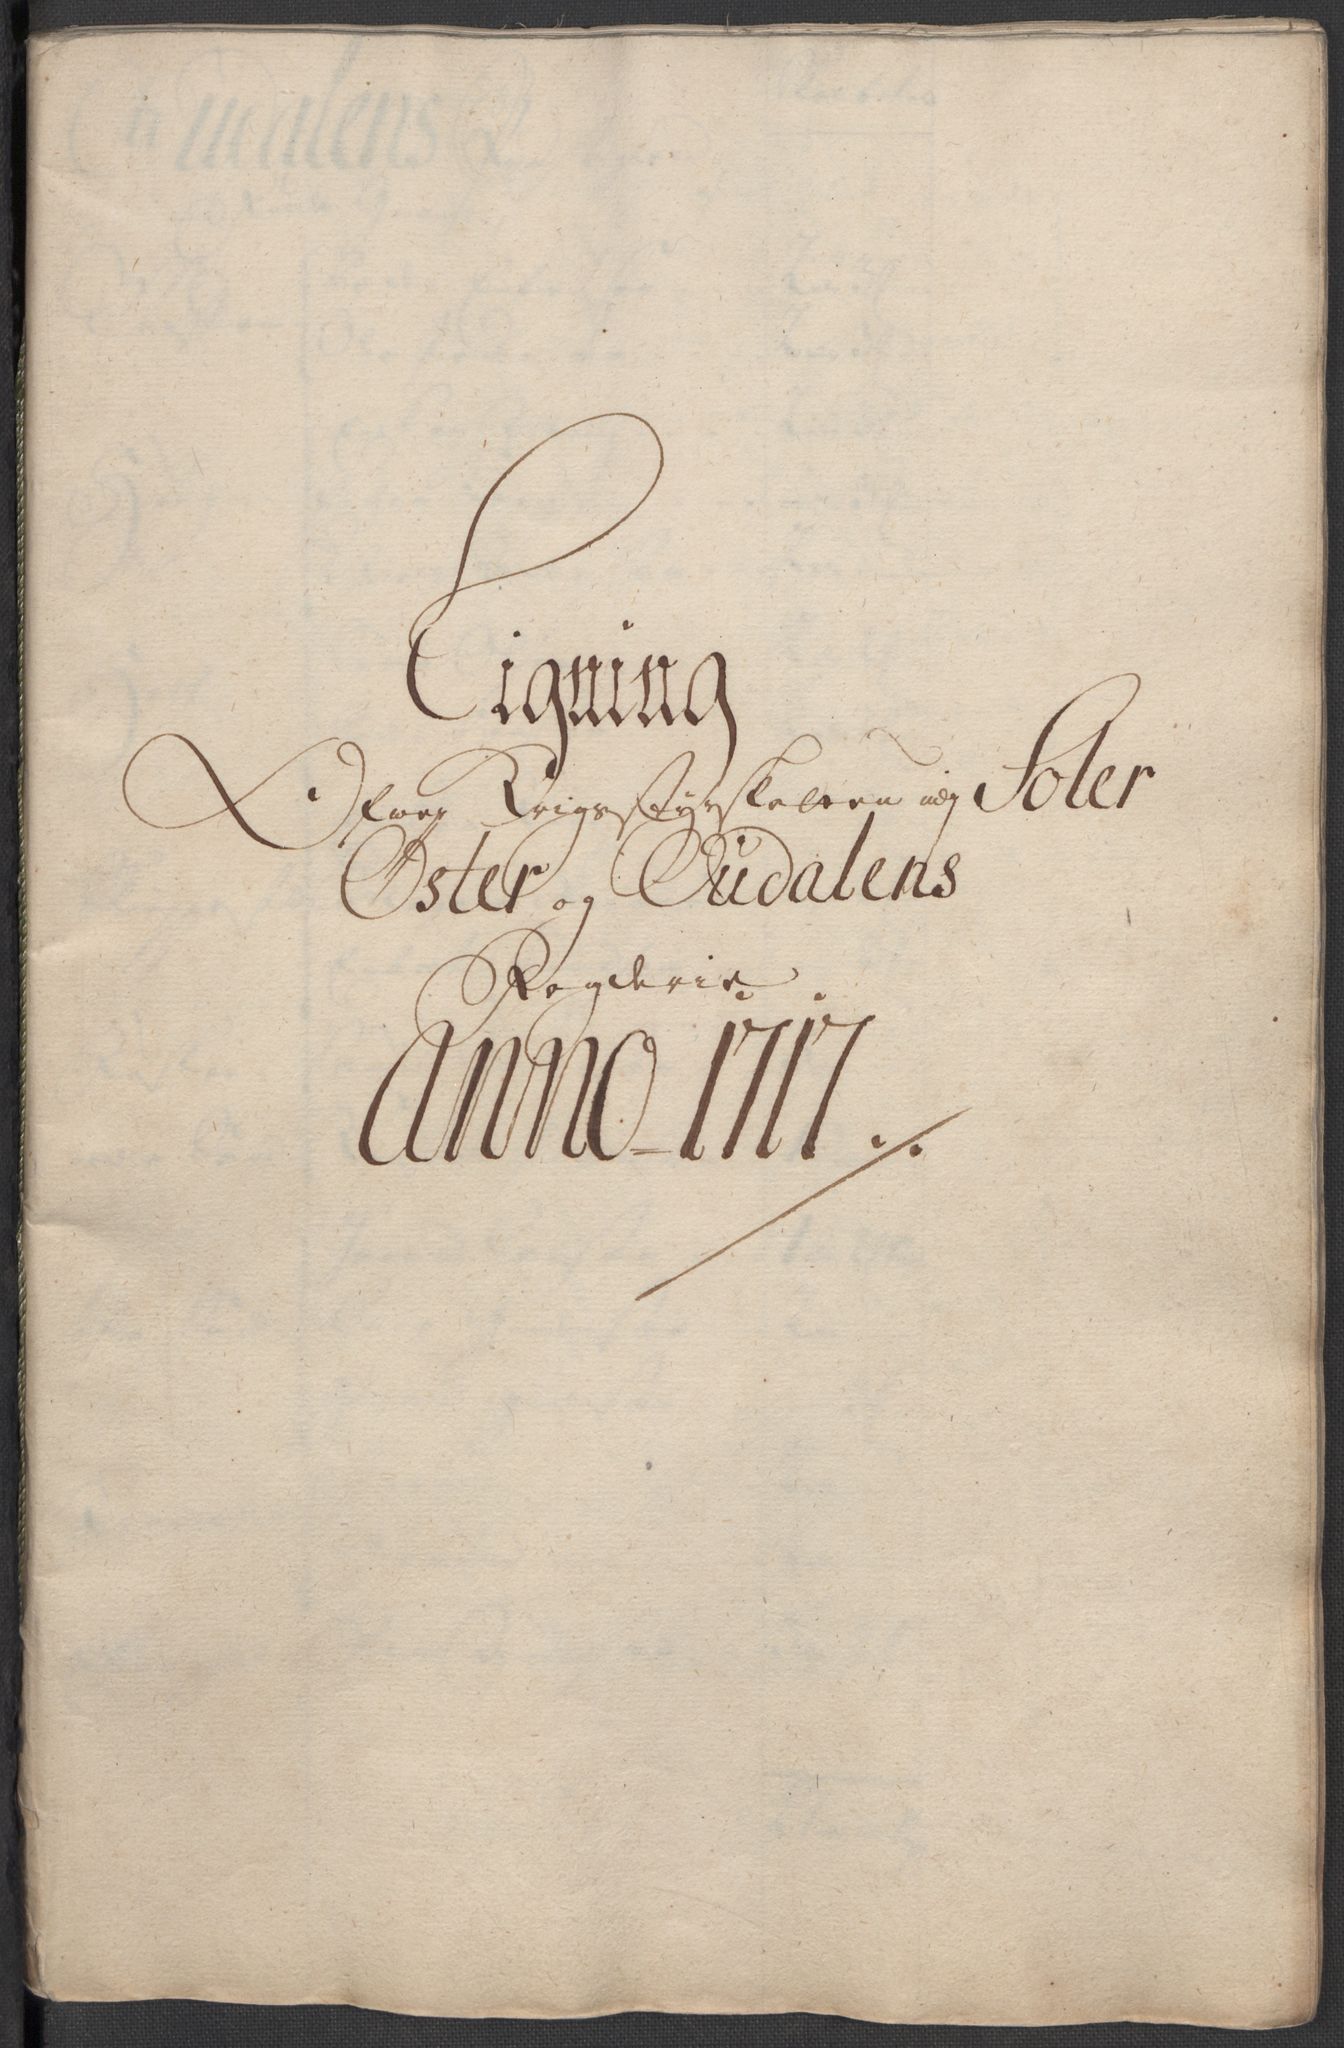 Ligning
Ofwer Krigsstyrskatten udj Soler
Øster og Oudalens
Fogderie
Anno 1717